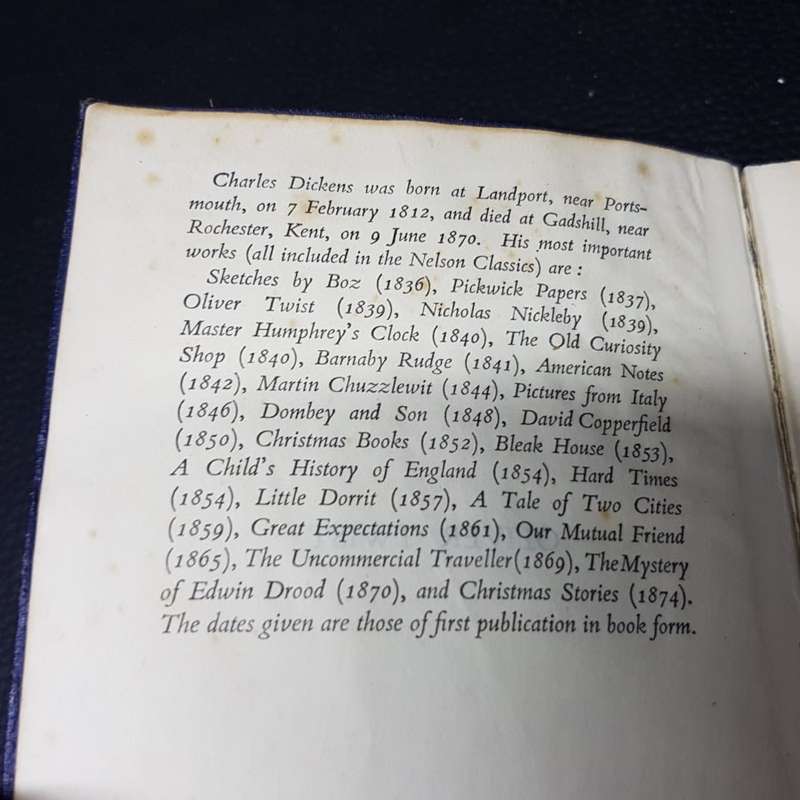 Charles Dickens was born at Landport, near Ports-
mouth, on 7 February 1812, and died at Gadshill, near
Rochester, Kent, on 9 June 1870. His most important
works (all included in the Nelson Classics) are :
Sketches by Boz (1836), Pickwick Papers (1837),
Oliver Twist (1839), Nicholas Nickleby (1839),
Master Humphrey's Clock (1840), The Old Curiosity
Shop (1840), Barnaby Rudge (1841), American Notes
(1842), Martin Chuzzlewit (1844), Pictures from Italy
(1846), Dombey and Son (1848), David Copperfield
(1850), Christmas Books (1852), Bleak House (1853),
A Child's History of England (1854), Hard Times
(1854), Little Dorrit (1857), A Tale of Two Cities
(1859), Great Expectations (1861), Our Mutual Friend
(1865), The Uncommercial Traveller (1869), The Mystery
of Edwin Drood (1870), and Christmas Stories (1874).
The dates given are those of first publication in book form.